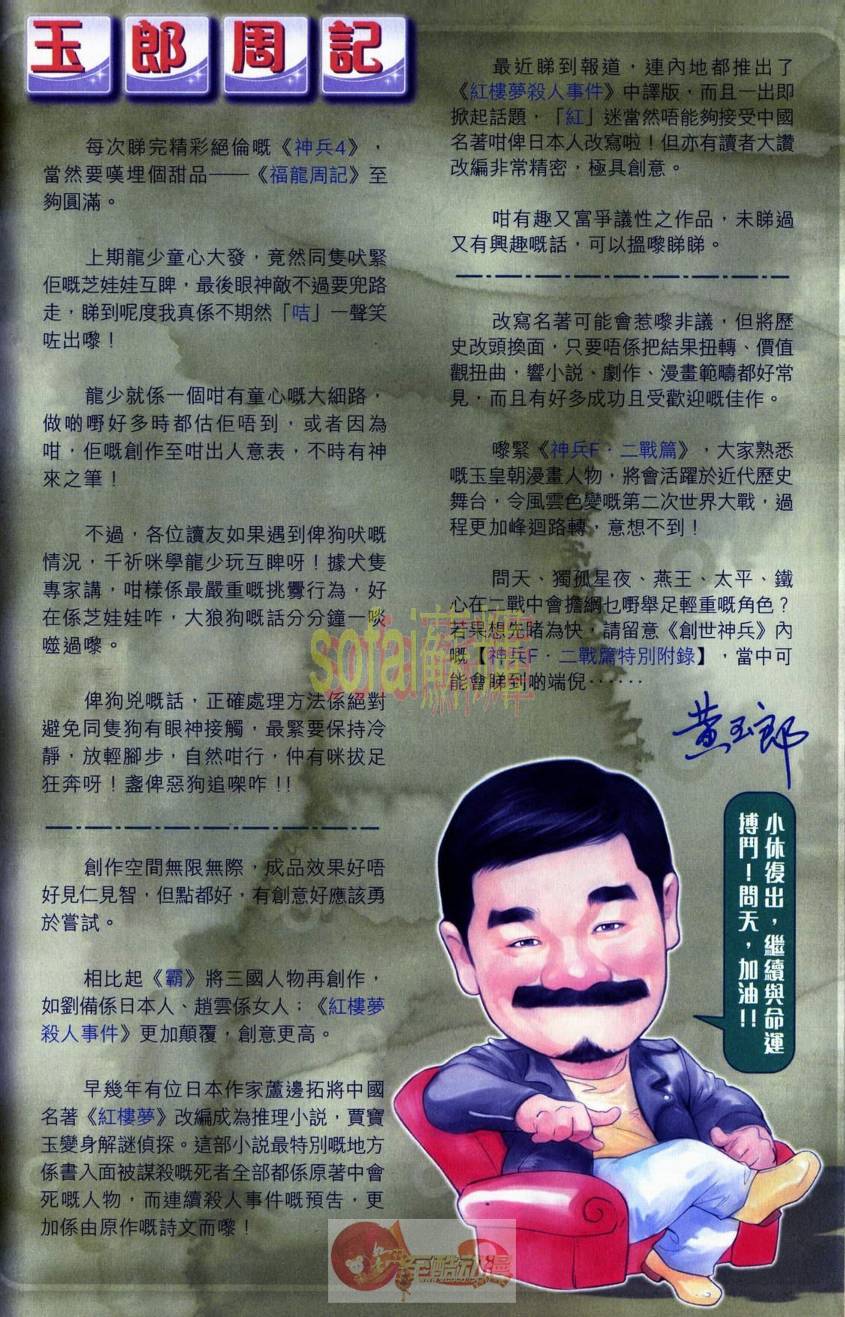 玉郎周記
每次睇完精彩絕倫嘅《神兵4》，
當然要嘆埋個甜品——《福龍周記》至
夠圓滿。
上期龍少童心大發，竟然同隻吠緊
佢嘅芝娃娃互睥，最後眼神敵不過要兜路
走，睇到呢度我真係不期然「咭」一聲笑
咗出嚟！
龍少就係一個咁有童心嘅大細路，
做啲嘢好多時都估佢唔到，或者因為
咁，佢嘅創作至咁出人意表，不時有神
來之筆！
不過，各位讀友如果遇到俾狗吠嘅
情況，千祈咪學龍少玩互睥呀！據犬隻
專家講，咁樣係最嚴重嘅挑釁行為，好
在係芝娃娃咋，大狼狗嘅話分分鐘一啖
噬過嚟。
俾狗兇嘅話，正確處理方法係絕對
避免同隻狗有眼神接觸，最緊要保持冷
靜，放輕腳步，自然咁行，仲有咪拔足
狂奔呀！盞俾惡狗追㗎咋!!
創作空間無限無際，成品效果好唔
好見仁見智，但點都好，有創意好應該勇
於嘗試。
相比起《霸》將三國人物再創作，
如劉備係日本人、趙雲係女人；《紅樓夢
殺人事件》更加顛覆，創意更高。
早幾年有位日本作家蘆邊拓將中國
名著《紅樓夢》改編成為推理小説，賈寶
玉變身解謎偵探。這部小説最特別嘅地方
係書入面被謀殺嘅死者全部都係原著中會
死嘅人物，而連續殺人事件嘅預告，更
加係由原作嘅詩文而嚟！
最近睇到報道，連內地都推出了
《紅樓夢殺人事件》中譯版，而且一出即
掀起話題，「紅」迷當然唔能夠接受中國
名著咁俾日本人改寫啦！但亦有讀者大讚
改編非常精密，極具創意。
咁有趣又富爭議性之作品，未睇過
又有興趣嘅話，可以搵嚟睇睇。
改寫名著可能會惹嚟非議，但將歷
史改頭換面，只要唔係把結果扭轉、價值
觀扭曲，響小説、劇作、漫畫範疇都好常
見，而且有好多成功且受歡迎嘅佳作。
嚟緊《神兵F‧二戰篇》，大家熟悉
嘅玉皇朝漫畫人物，將會活躍於近代歷史
舞台，令風雲色變嘅第二次世界大戰，過
程更加峰迴路轉，意想不到！
問天、獨孤星夜、燕王、太平、鐵
心在二戰中會擔綱乜嘢舉足輕重嘅角色？
若果想先睹為快，請留意《創世神兵》內
嘅【神兵F‧二戰篇特別附錄】，當中可
能會睇到啲端倪‥‥‥
黃玉郎
小休復出，繼續與命運
搏鬥！問天，加油!!
sofai